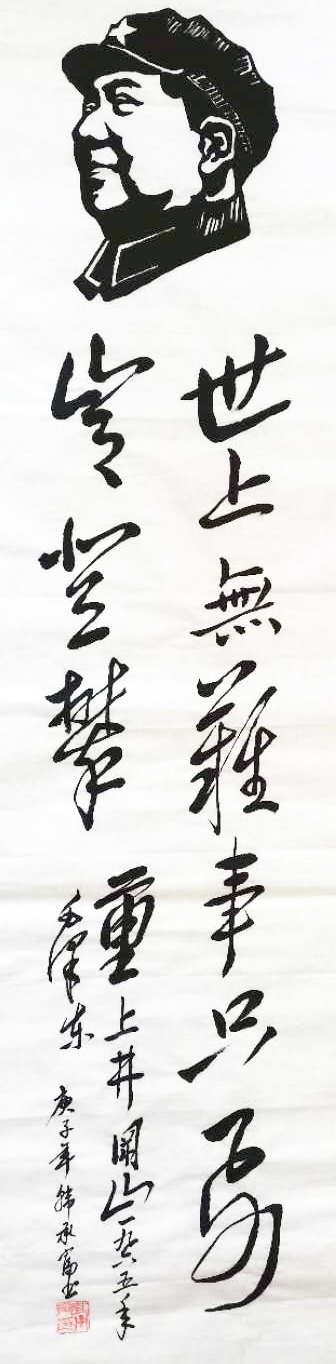 世上無難事只要
肯登攀 重上井岡山一九六五年
毛澤东 庚子年韩承富书